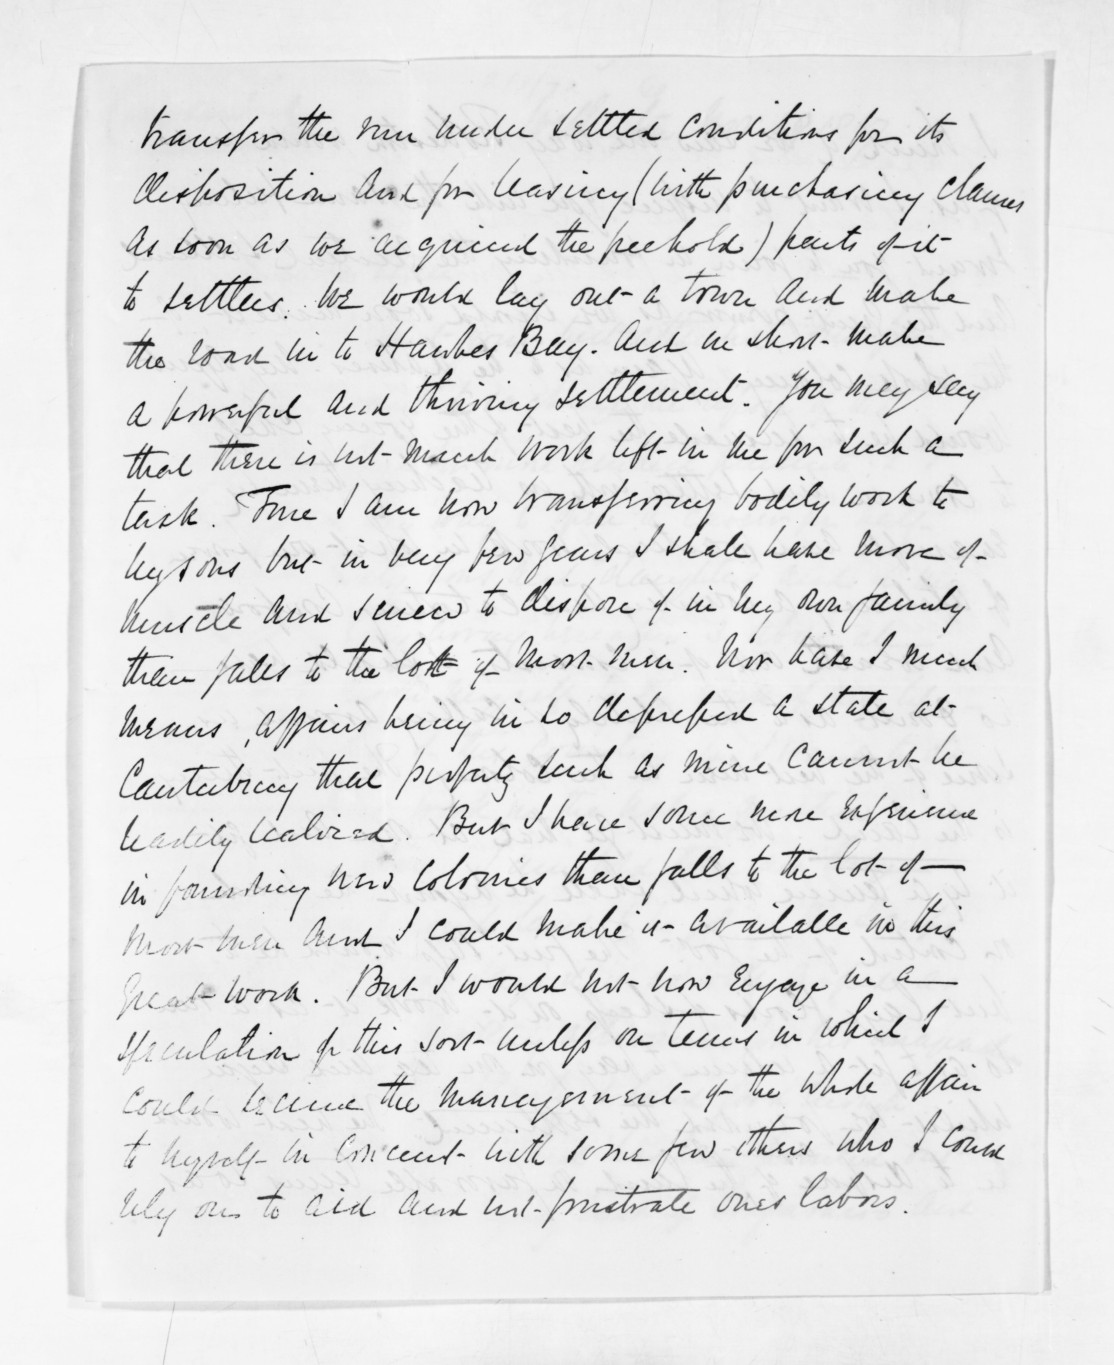 transfer the run under settled conditions for its
disposition and for leasing (with purchasing clauses
as soon as we acquired the freehold) parts of it
to settlers. We would lay out a town and make
the road in to Hawkes Bay. And in short make
a powerful and thriving settlement. You may say
that there is not much work left in me for such a
task. True I am now transferring bodily work to
my sons but in very few years I shall have more of
muscle and sinew to dispose of in my own family
than falls to the lot of most men. Nor have I much
means, affairs being in so depressed a state at
Canterbury that property such as mine cannot be
readily realized. But I have some more experience
in founding new colonies than falls to the lot of
most men and I could make it available in this
great work. But I would not now engage in a
speculation of this sort unless on terms in which I
could secure the management of the whole affair
to myself in concert with some few others who I could
rely on to aid and not frustrate ones labors.